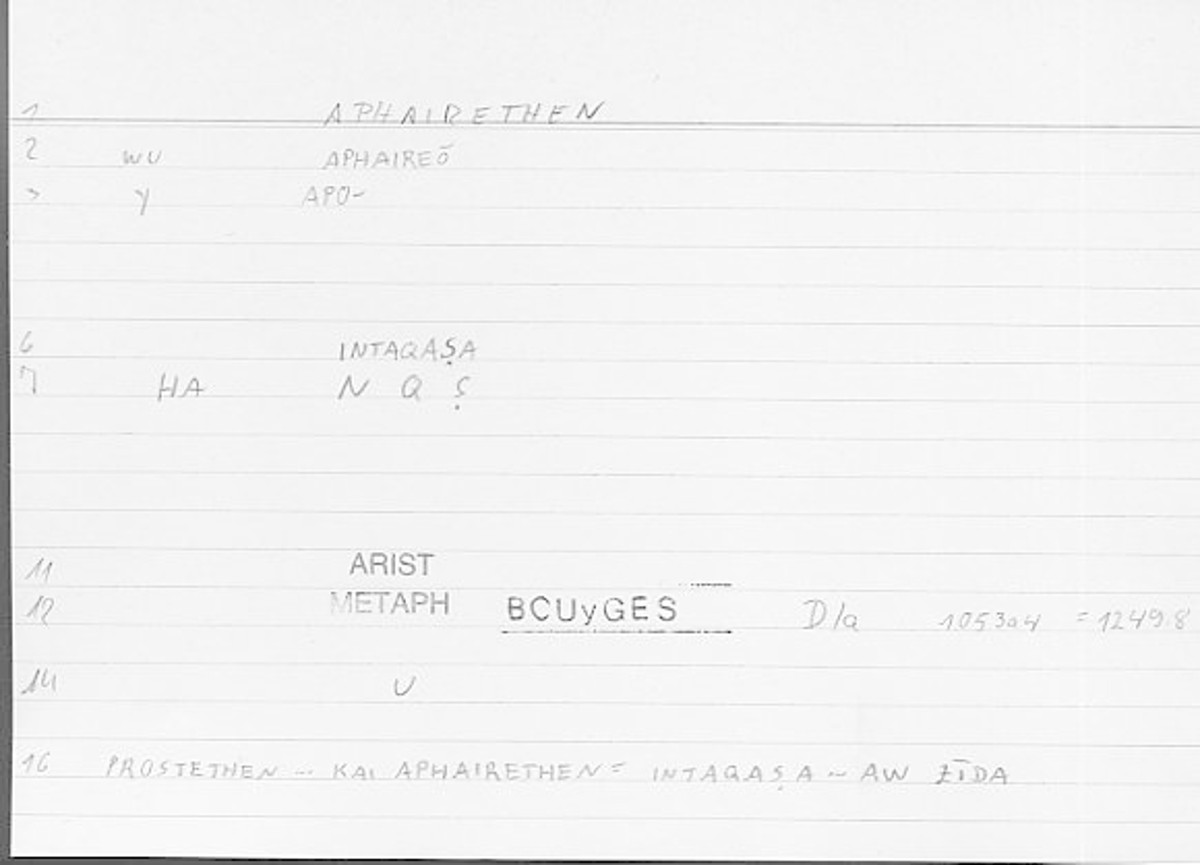 1 APHAIRETHEN
2 WU APHAIREŌ
> Y APO-
6 INTAQAṢA
7 HA N Q Ṣ
11 ARIST
12 METAPH BCUyGES D/a 1053a4 = 1249.8
14 U
16 PROSTETHEN ... KAI APHAIRETHEN = INTAQAṢA ~ AW ZĪDA